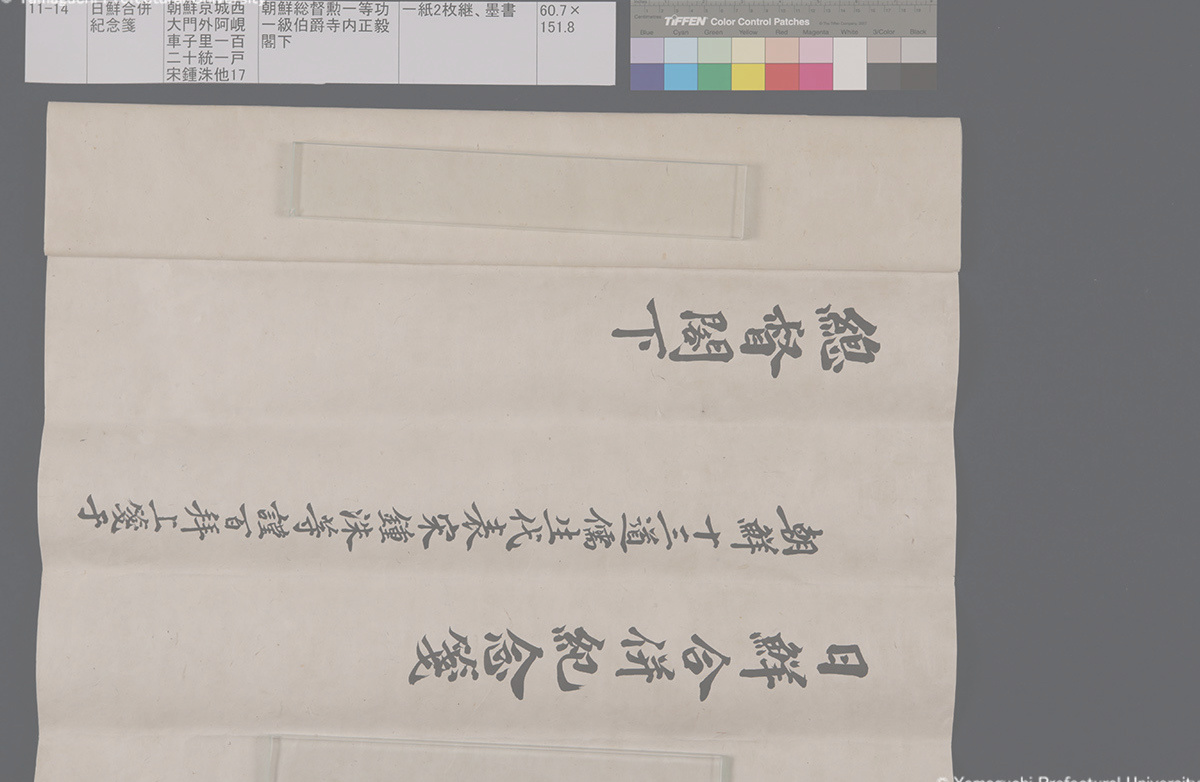 11-14
日鮮合併
紀念箋
朝鮮京城西
大門外阿峴
車子里一百
二十統一戸
宋鍾洙他17
朝鮮総督勲一等功
一級伯爵寺内正毅
閣下
一紙2枚継、墨書
60.7×
151.8
TIFFEN Color Control Patches
© The Tiffen Company, 2007
Centimetres
Blue Cyan Green Yellow Red Magenta White 3/Color Black
日鮮合併紀念箋
朝鮮十三道儒生代表宋鍾洙等謹百拜上箋于
總督閤下
© Yamaguchi Prefectural University